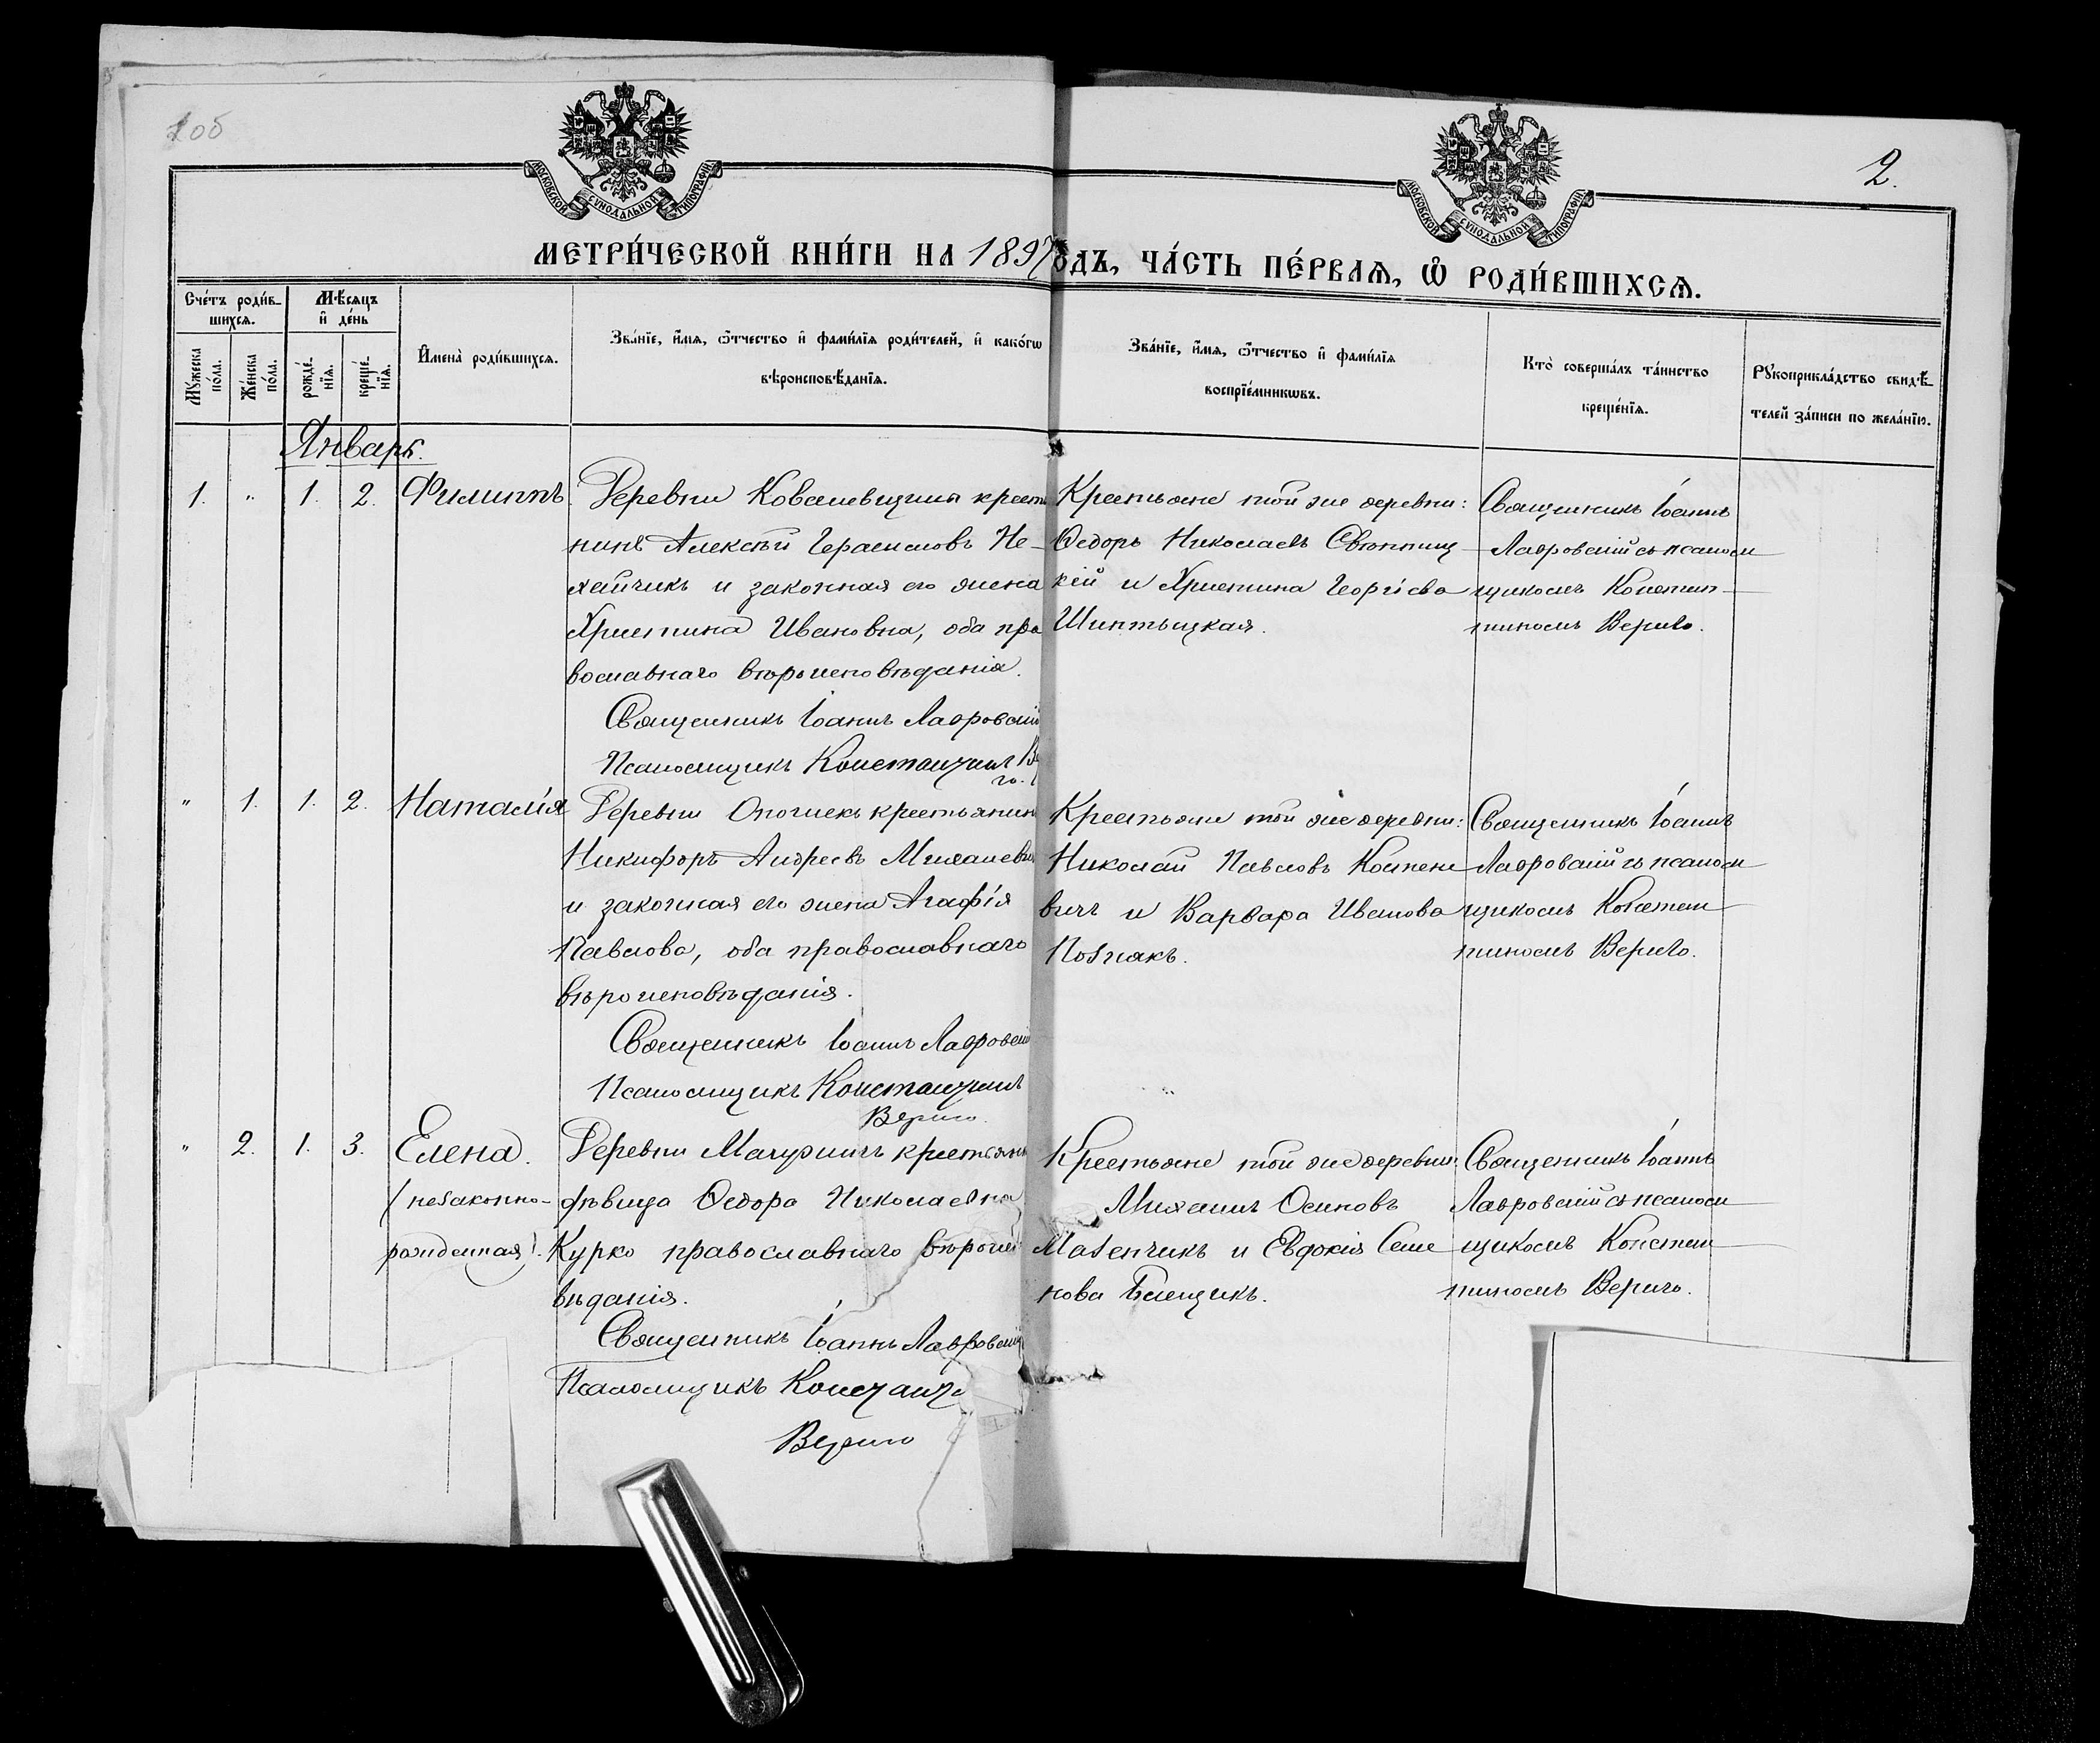 1об
2.
МОСКОВСКОЙ СѴНОДАЛЬНОЙ ТИПОГРАФІИ
МОСКОВСКОЙ СѴНОДАЛЬНОЙ ТИПОГРАФІИ
МЕТРИ́ЧЕСКОЙ КНИ́ГИ НА 1897 ОДЪ, ЧА́СТЬ ПЕ́РВАѦ, Ѡ҆ РОДИ́ВШИХСѦ.
Сче́тъ роди́в-
шихсѧ.
Мѣ́сѧцъ
и҆ де́нь
Мꙋ́жеска по́ла.
Же́нска по́ла.
рожде́-
нїѧ.
креще́-
нїѧ.
И҆мена̀ роди́вшихсѧ.
Зва́нїе, и҆́мѧ, ѻ҆́тчество и҆ фами́лїѧ роди́телей, и҆ како́гѡ
вѣроисповѣ́данїѧ.
Зва́нїе, и҆́мѧ, ѻ҆́тчество и҆ фами́лїѧ
воспрїе́мникѡвъ.
Кто̀ соверша́лъ та́инство
креще́нїѧ.
Рꙋкоприкла́дство свидѣ́-
телей за́писи по жела́нїю.
Январь.
1. " 1. 2. Филиппъ.
Деревни Ковалевщины крест
нинъ Алексѣй Герасимовъ Не-
хайчикъ и законная его жена
Христина Ивановна, оба пра
вославнаго вѣроисповѣданія.
Священникъ Іоаннъ Лавровскій
Псаломщикъ Константинъ
Крестьяне той же деревни:
Ѳедоръ Николаевъ
кій и Христина Георгіева
Священникъ Іоаннъ
Лавровскій съ псалом
щикомъ Констан-
тиномъ Вериго.
" 1. 1. 2. Наталія
Деревни крестьянинъ
Никифоръ Андреевъ
и законная его жена Агафія
Павлова, оба православнаго
вѣроисповѣданія.
Священникъ Іоаннъ Лавровскій
Псаломщикъ Константинъ
Вериго.
Крестьяне той же деревни:
Николай Павловъ
вичъ и Варвара Иванова
Познякъ.
Священникъ Іоаннъ
Лавровскій съ псалом
щикомъ Констан-
тиномъ Вериго.
" 2. 1. 3. Елена.
(незаконно-
рожденная).
Деревни крестьянк
дѣвица Ѳедора Николаевна
Курко православнаго вѣроис
вѣданія.
Священникъ Іоаннъ Лавровскій
Псаломщикъ Константи
Вериго
Крестьяне той же деревни:
Михаилъ Осиповъ
Мазенчикъ и Евдокія Семе
нова
Священникъ Іоаннъ
Лавровскій съ псалом
щикомъ Констан-
тиномъ Вериго.